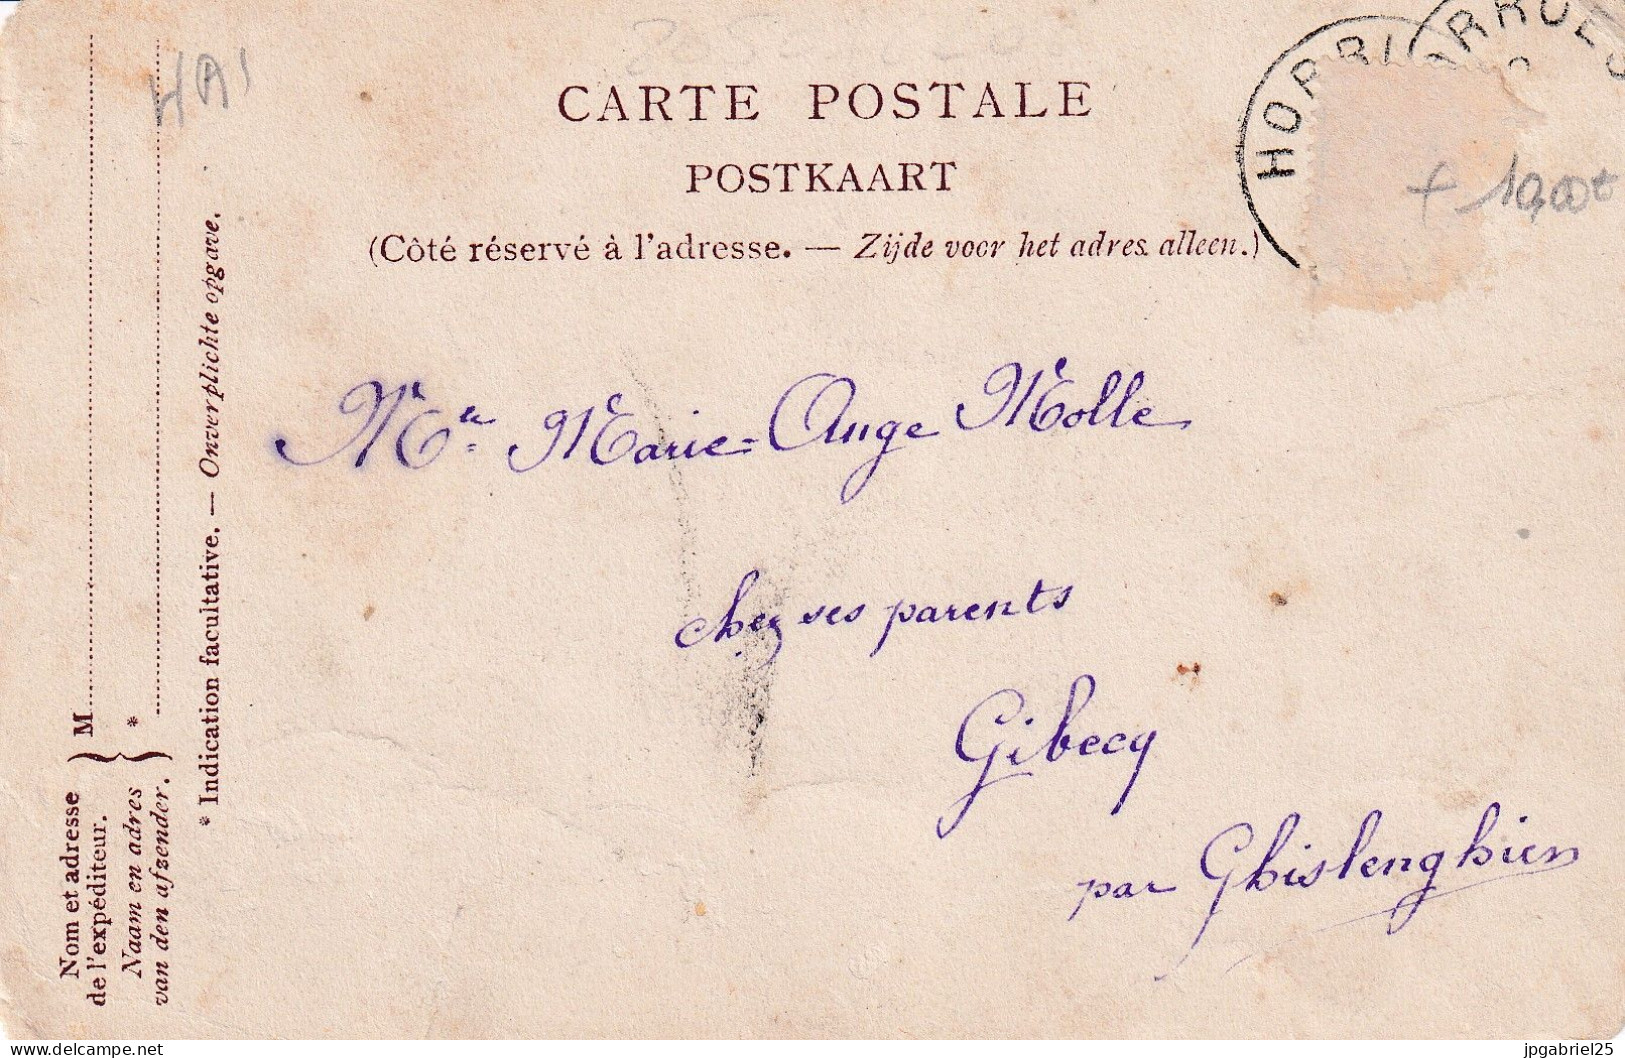 CARTE POSTALE
POSTKAART
(Côté réservé à l'adresse. — Zijde voor het adres alleen.)
HAI
+ 10,00€
Mlle Marie=Ange Molle
chez ses parents
Gibecq
par Ghislenghien
Nom et adresse
de l'expéditeur. } M
Naam en adres
van den afzender. } *
* Indication facultative. — Onverplichte opgave.
jpgabriel25